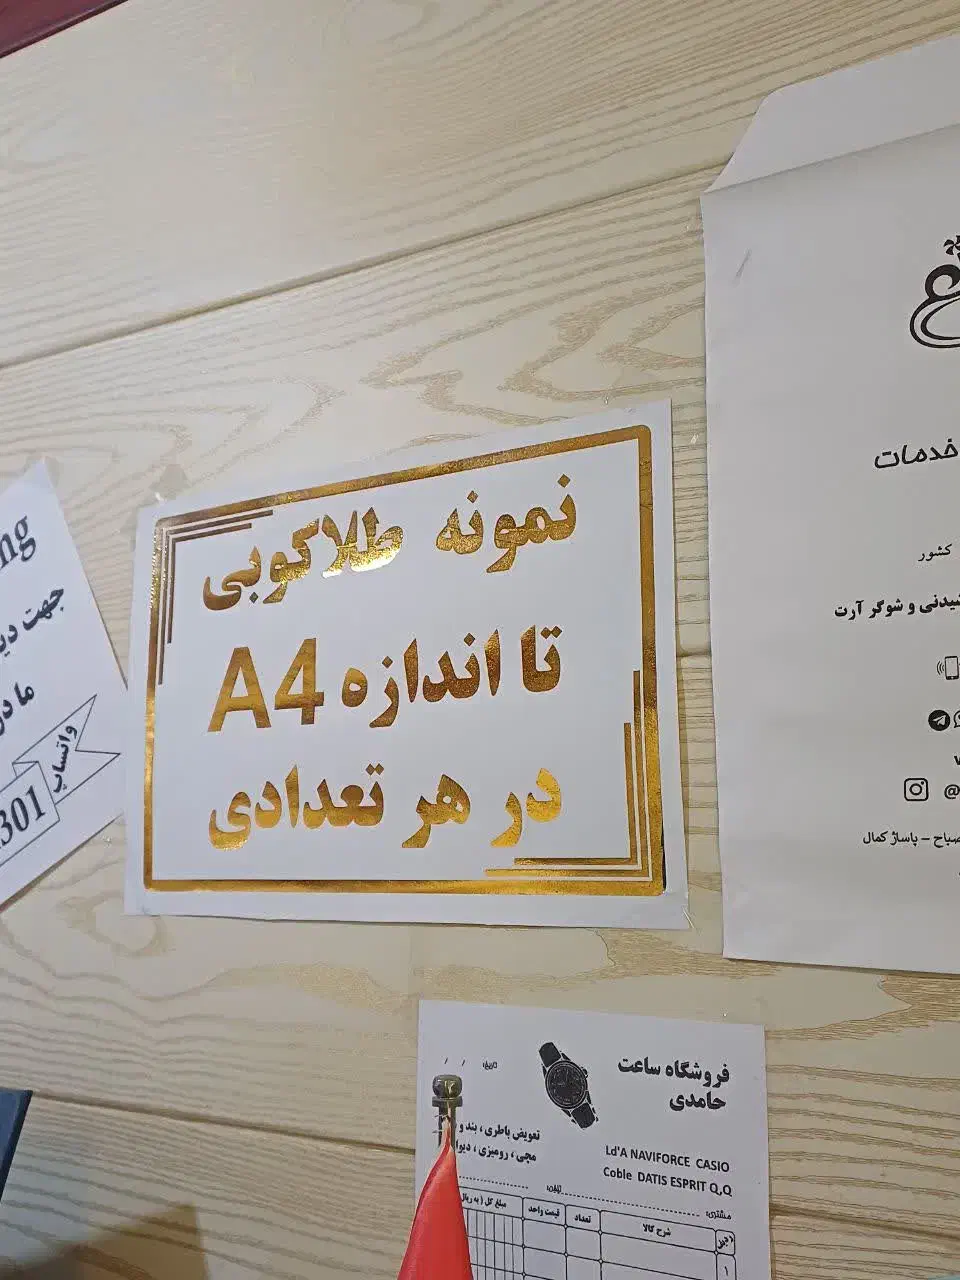 نمونه طلاکوبی
تا اندازه A4
در هر تعدادی
خدمات
کشور
و شوگر آرت
@
پاساژ کمال
ng
جهت
ما
واتساپ
301
فروشگاه ساعت
حامدی
تاریخ: / /
تعویض باطری ، بند و
مچی ، رومیزی ،
Ld'A NAVIFORCE CASIO
Coble DATIS ESPRIT Q,Q
مشتری: تلفن:
ردیف شرح کالا تعداد قیمت واحد مبلغ کل ( به ریال
۱